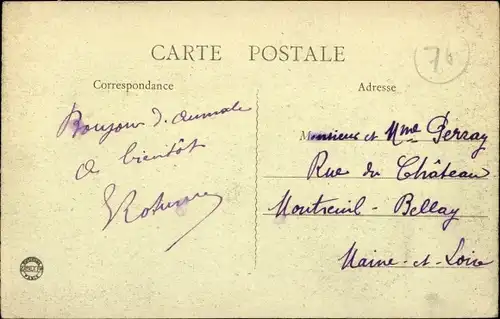 CARTE POSTALE
76
Correspondance
Adresse
Bonjour d'Aumale
à bientôt
Monsieur et Mme Perray
Rue du Château
Montreuil-Bellay
Maine-et-Loire